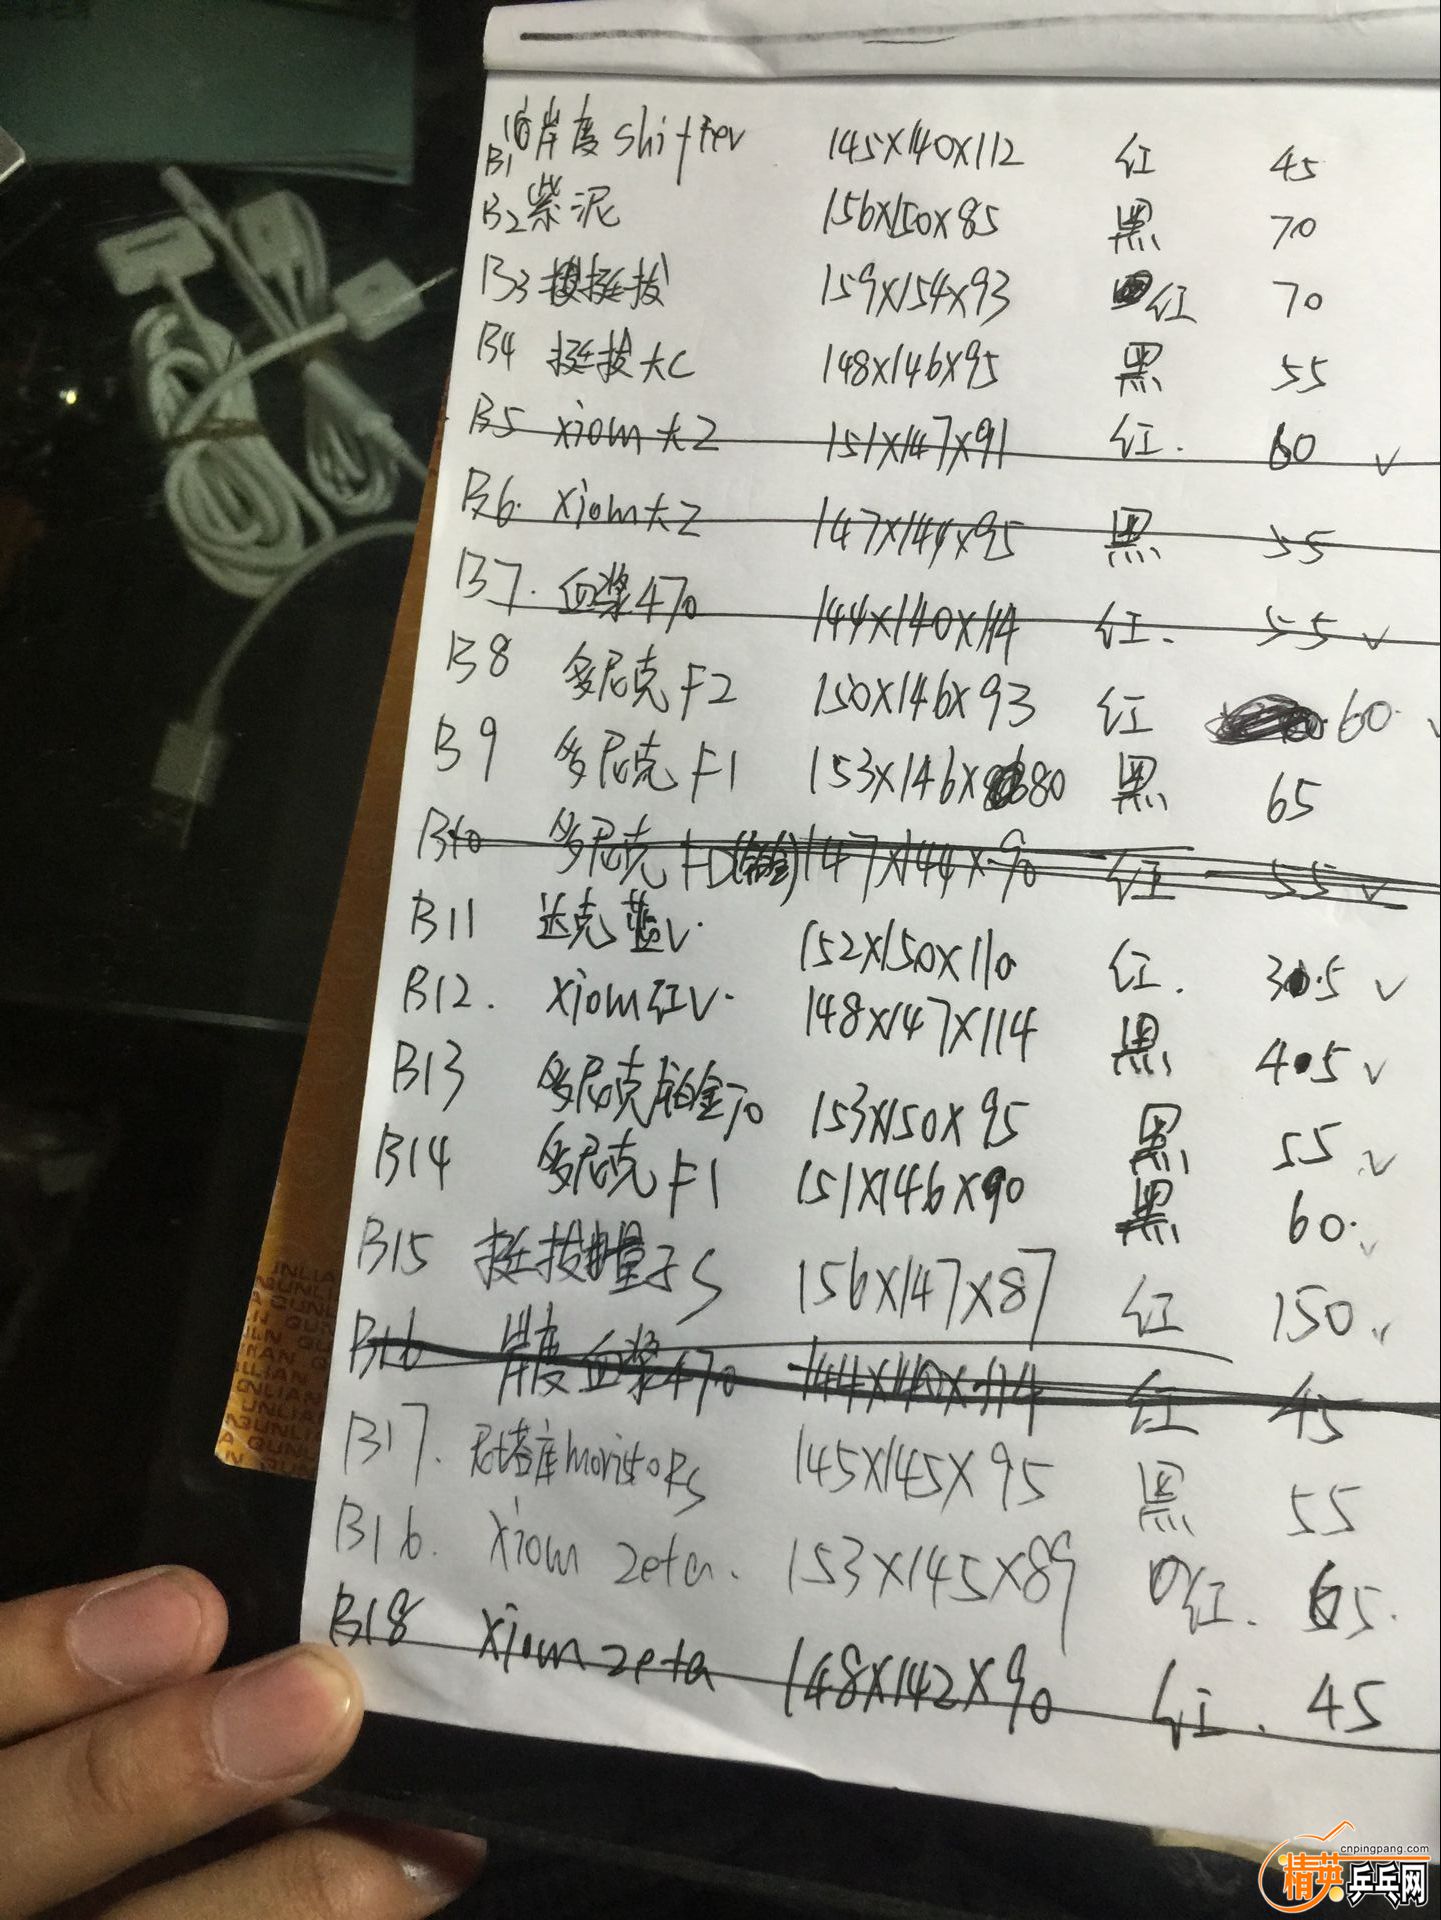 B1 岸度 shifter 145X140X112 红 45
B2 紫泥 156X150X85 黑 70
B3 挺拔 159X154X93 红 70
B4 挺拔大C 148X146X95 黑 55
B5 xiom大Z 151X147X91 红. 60 √
B6. xiom大Z 147X144X95 黑 55
B7. 血浆470 144X140X114 红. 55 √
B8 多尼克F2 150X146X93 红 60. √
B9 多尼克F1 153X146X80 黑 65
B10 多尼克FD(铂金) 147X144X90 红 55 √
B11 达克蓝V. 152X150X110 红. 35 √
B12. xiom红V. 148X147X114 黑 45 √
B13 多尼克铂金70 153X150X95 黑 55 √
B14 多尼克F1 151X146X90 黑 60. √
B15 挺拔量子S 156X147X87 红 150 √
B16 岸度血浆470 144X140X114 红 45
B17. 尼塔库moristoRS 145X145X95 黑 55
B16. xiom zeta. 153X145X89 红. 65.
B18 xiom zeta 148X142X90 红. 45
UNLIAN QUNLIAN
cnpingpang.com
精英乒乓网